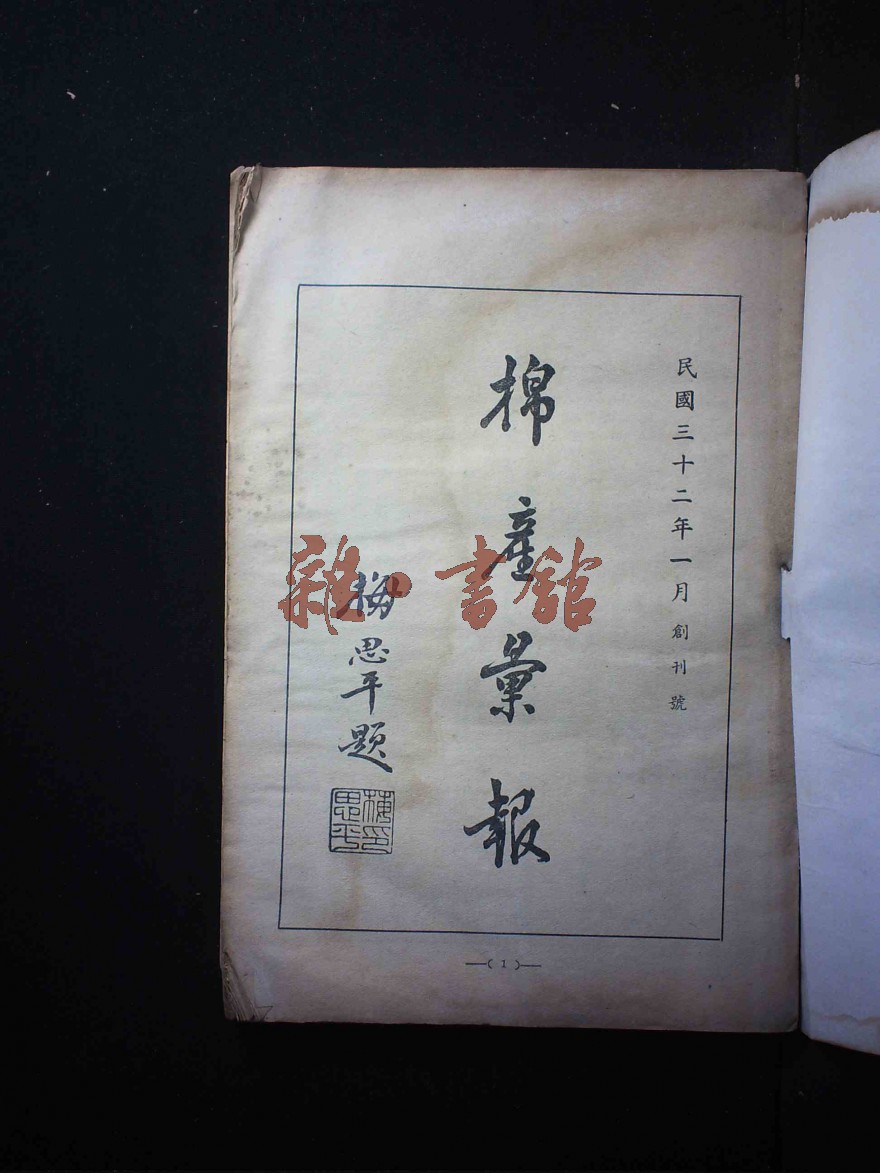 民國三十二年一月創刊號
棉產彙報
梅思平題
梅思平印
雜·書館
—( 1 )—